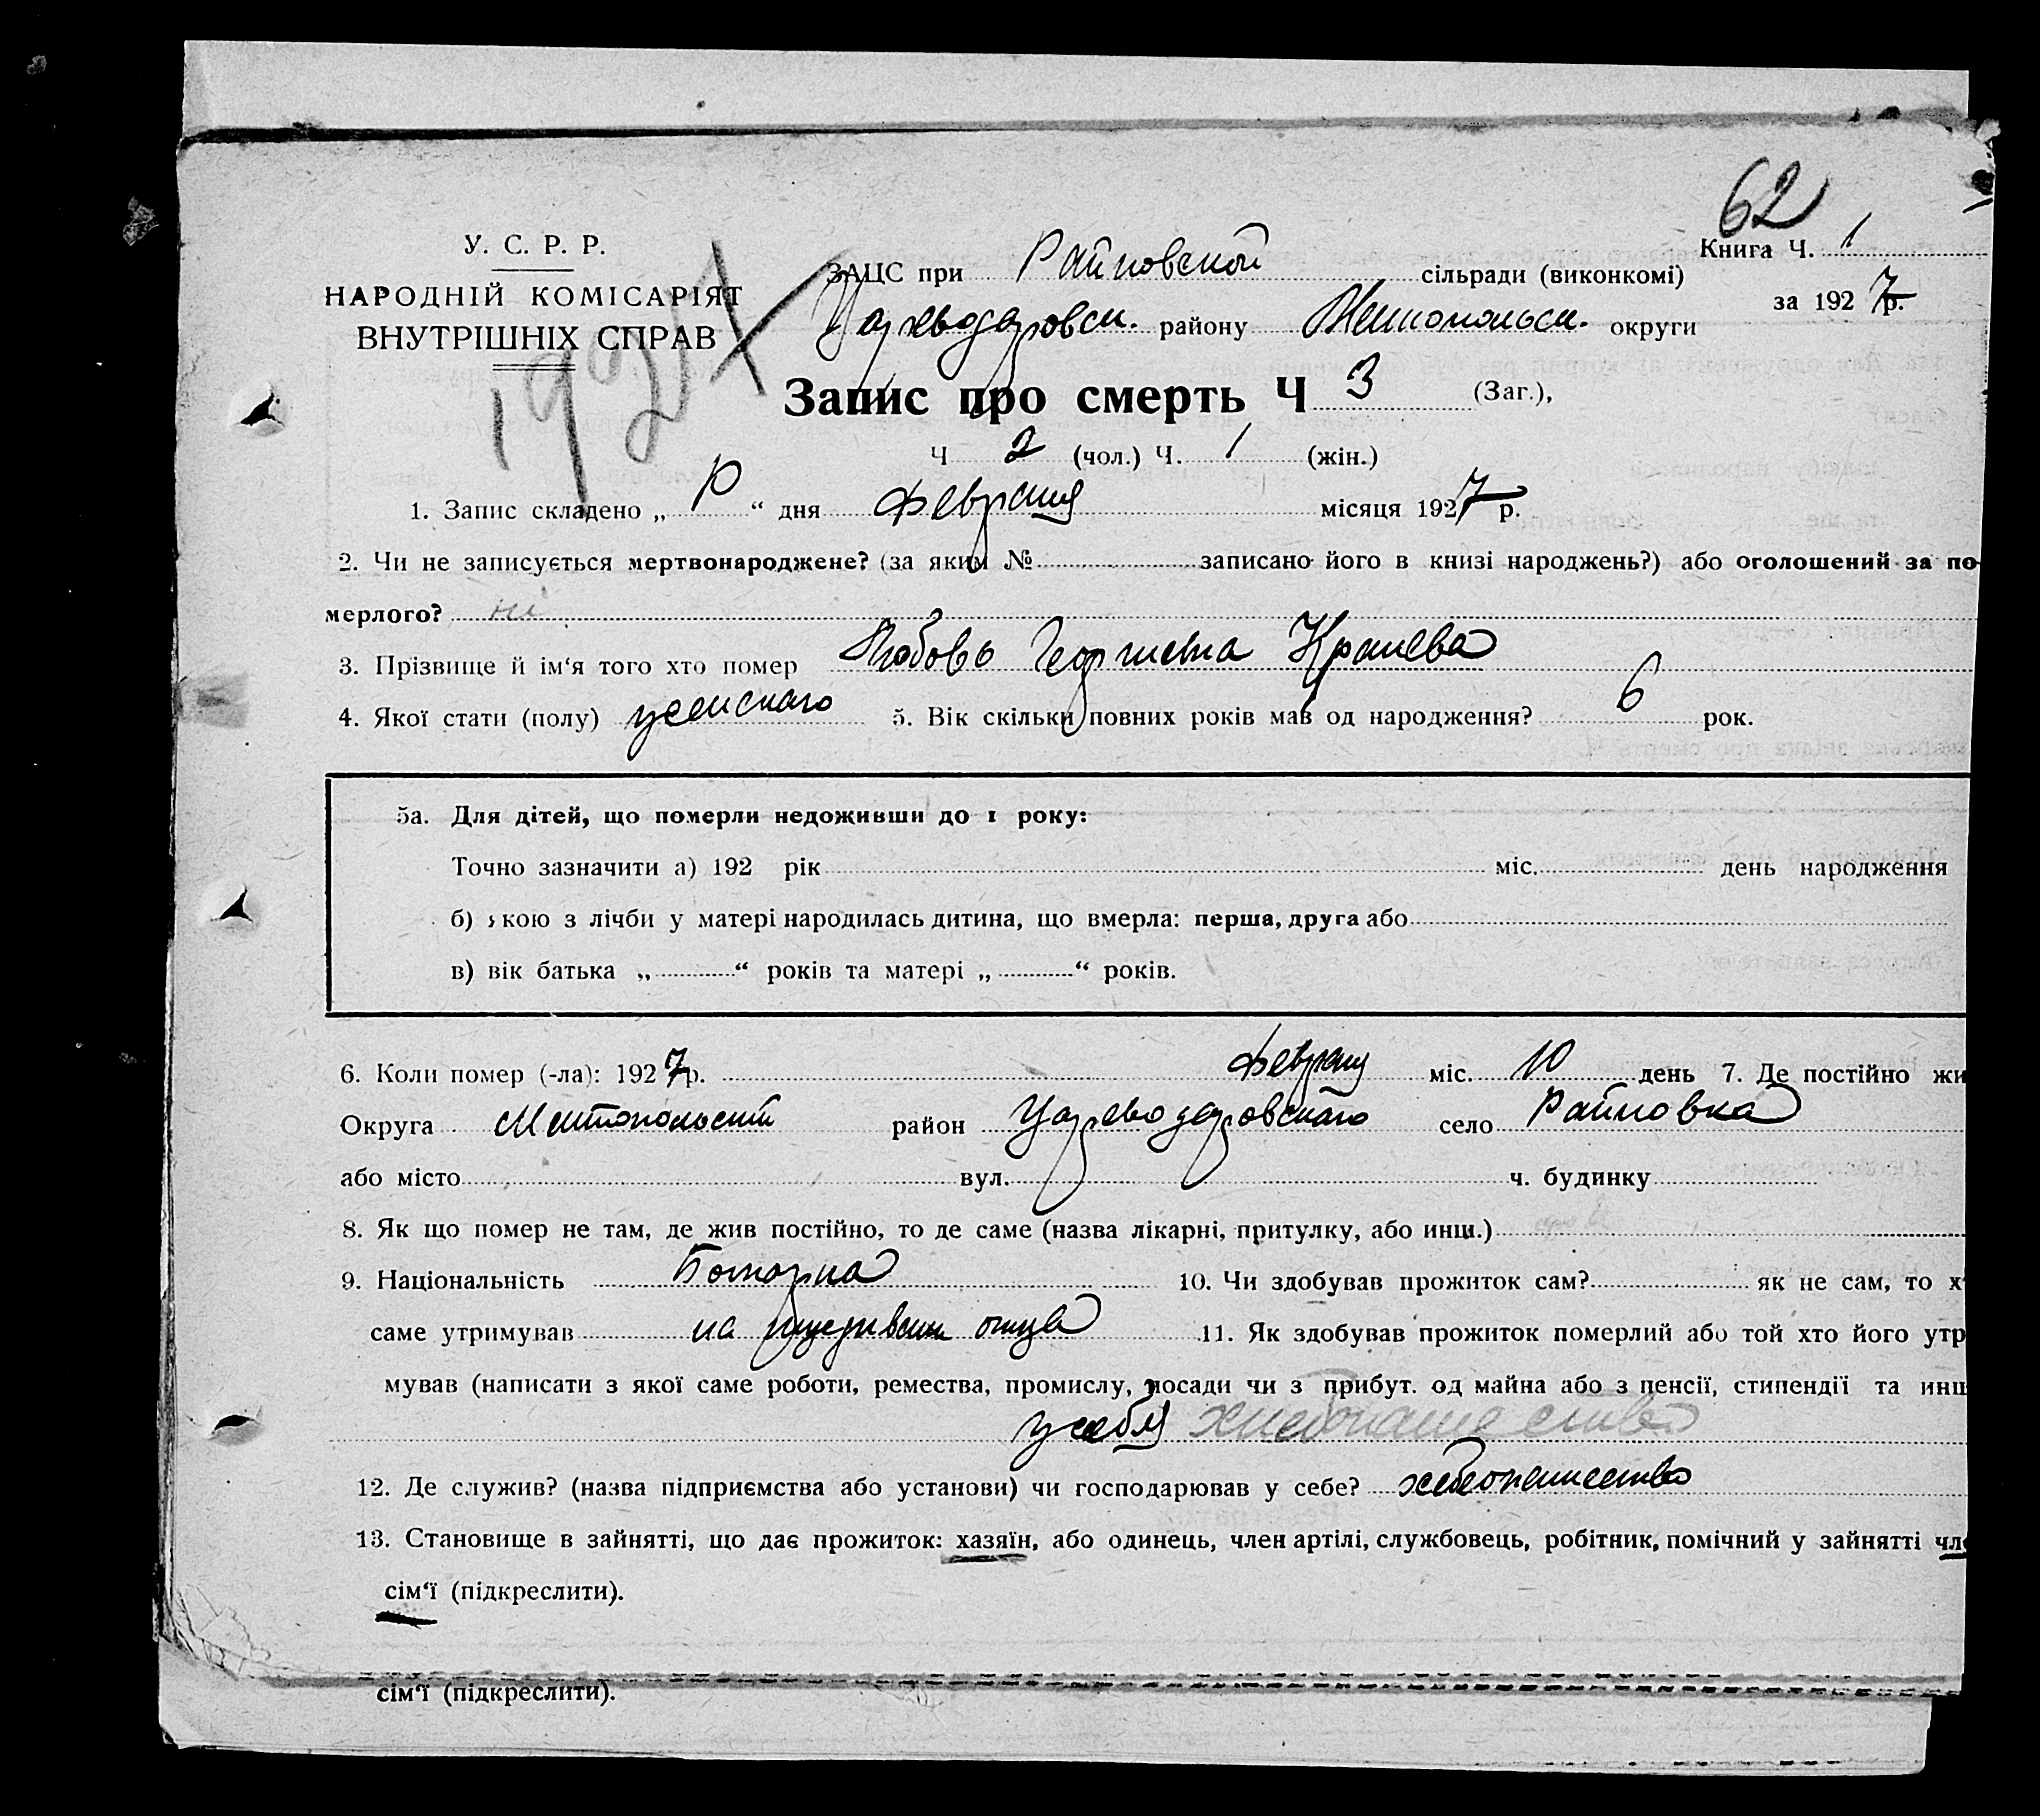 62
У. С. Р. Р.
НАРОДНІЙ КОМІСАРІЯТ
ВНУТРІШНІХ СПРАВ
192
ЗАЦС при Райновской сільради (виконкомі)
Книга Ч. 1
за 1927 р.
району Мелитопольск. округи
Запис про смерть Ч 3 (Заг.),
Ч 2 (чол.) Ч. 1 (жін.)
1. Запис складено „ “ дня февраля місяця 1927 р.
2. Чи не записується мертвонароджене? (за яким № записано його в книзі народжень?) або оголошений за по-
мерлого? ні
3. Прізвище й ім‘я того хто помер Любовь Георгиевна Кралева
4. Якої стати (полу) женскаго 5. Вік скільки повних років мав од народження? 6 рок.
5а. Для дітей, що померли недоживши до 1 року:
Точно зазначити а) 192 рік міс. день народження
б) якою з лічби у матері народилась дитина, що вмерла: перша, друга або
в) вік батька „ “ років та матері „ “ років.
6. Коли помер (-ла): 1927 р. февраля міс. 10 день 7. Де постійно жи
Округа Мелитопольский район Цареводаровскаго село Райновка
або місто вул. ч. будинку
8. Як що помер не там, де жив постійно, то де саме (назва лікарні, притулку, або инш.)
9. Національність Болгарка 10. Чи здобував прожиток сам? як не сам, то х
саме утримував на отца 11. Як здобував прожиток померлий або той хто його утр
мував (написати з якої саме роботи, ремества, промислу, посади чи з прибут. од майна або з пенсії, стипендії та инш
у себя хлебопашество
12. Де служив? (назва підприємства або установи) чи господарював у себе? хлебопашество
13. Становище в зайнятті, що дає прожиток: хазяїн, або одинець, член артілі, службовець, робітник, помічний у зайнятті чл
сім‘ї (підкреслити).
сім‘ї (підкреслити).